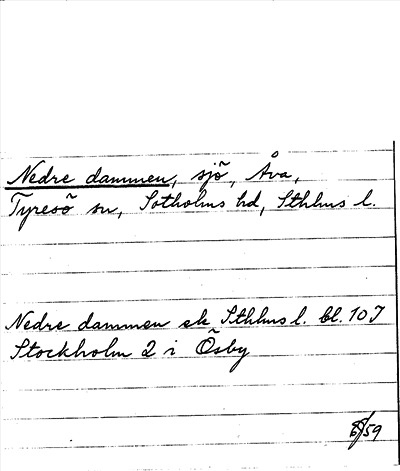 Nedre dammen, sjö, Åva,
Tyresö sn, Sotholms hd, Sthlms l.
Nedre dammen ek Sthlms l. bl. 10 J
Stockholm 2 i Ösby
8/59